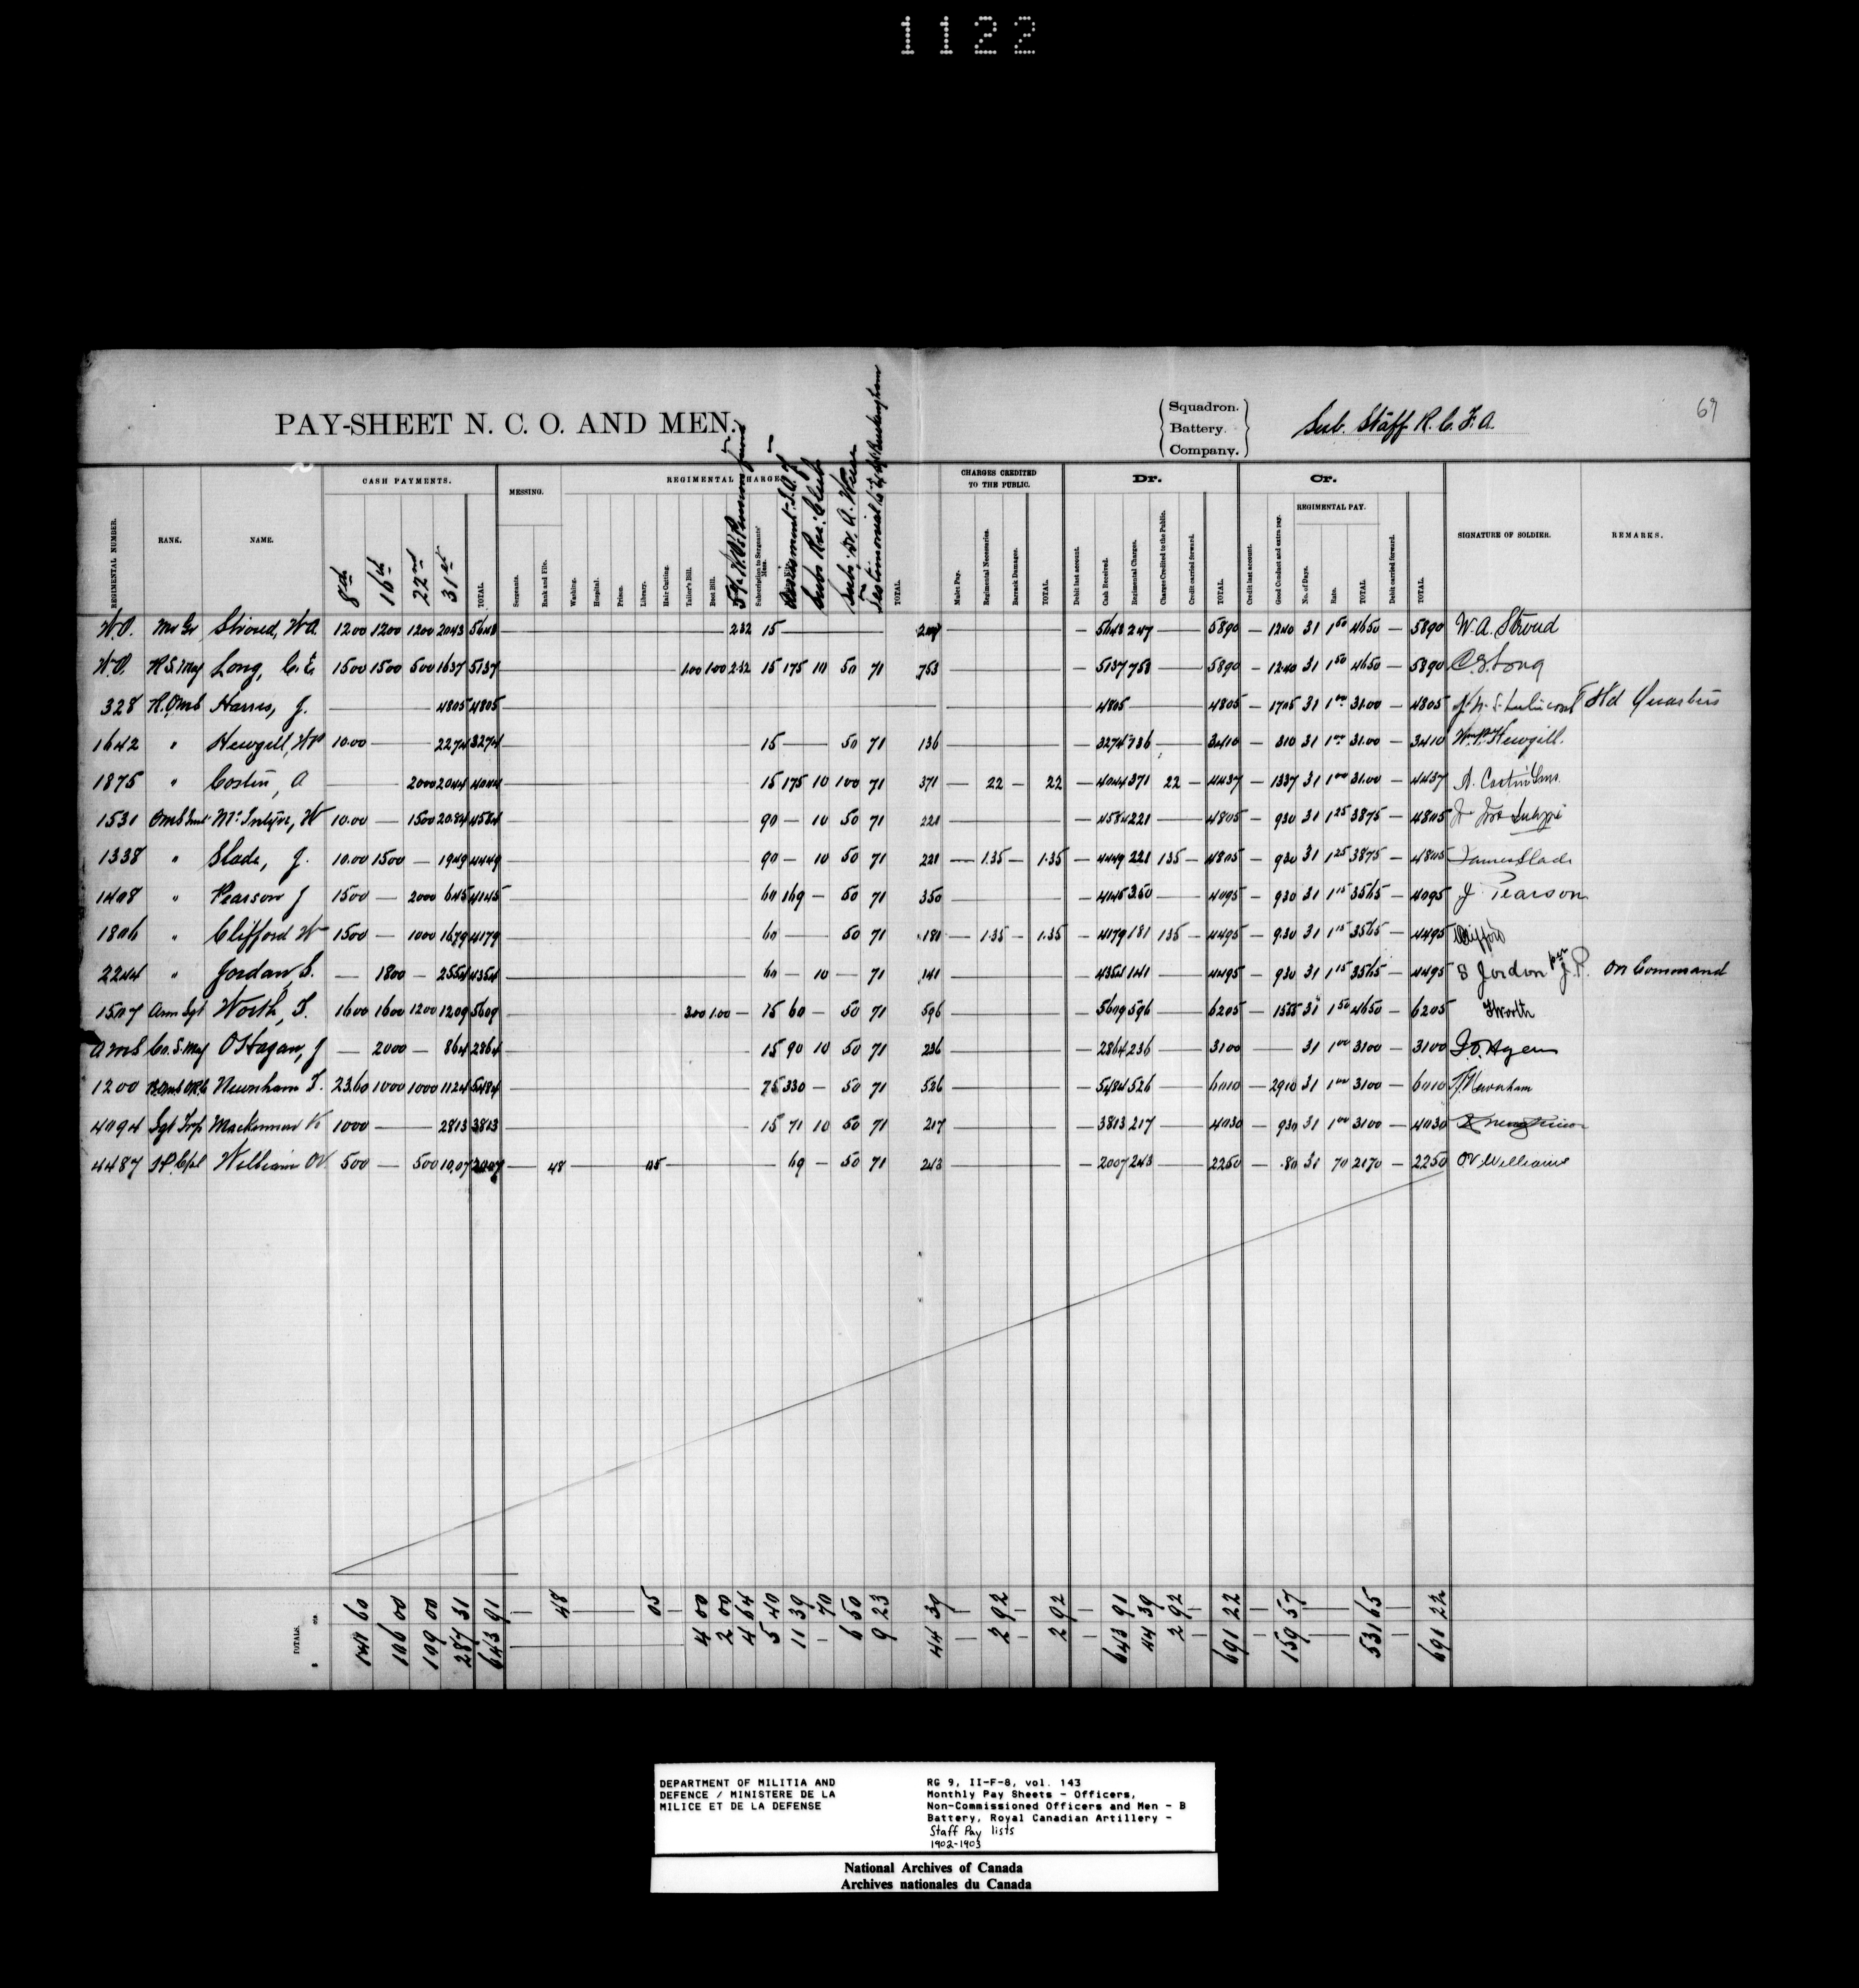 1122
PAY-SHEET N. C. O. AND MEN.
Squadron.
Battery.
Company.
Sub. Staff R. C. F. A.
67
REGIMENTAL NUMBER.
RANK.
NAME.
CASH PAYMENTS.
8th 16th 22nd 31st TOTAL.
MESSING.
Sergeants. Rank and File.
REGIMENTAL CHARGES
Washing. Hospital. Prison. Library. Hair Cutting. Tailor's Bill. Boot Bill. 5% W.O's Pension fund Subscription to Sergeants' Mess. Subs Rec: Club Testimonial TOTAL
CHARGES CREDITED TO THE PUBLIC.
Mulct Pay. Regimental Necessaries. Barrack Damages. TOTAL.
Dr.
Debit last account. Cash Received. Regimental Charges. Charges Credited to the Public. Credit carried forward. TOTAL.
Cr.
Credit last account. Good Conduct and extra pay.
REGIMENTAL PAY.
No. of Days. Rate. TOTAL Debit carried forward. TOTAL.
SIGNATURE OF SOLDIER.
REMARKS.
W.O. Mr Gr Stroud, W A 1200 1200 1200 2043 5643 — 232 15 — 247 — 5643 247 — 5890 — 1240 31 1 50 4650 — 5890 W. A. Stroud
W.O. R.S. Maj Long, C. E. 1500 1500 500 1637 5137 — 100 100 232 15 175 10 50 71 753 — 5137 753 — 5890 — 1240 31 1 50 4650 — 5890 C E Long
328 Harris, J. — 4805 4805 — 4805 — 4805 — 1705 31 1 00 3100 — 4805 Hd Quarters
1642 " Hewgill, Wm 1000 — 2274 3274 — 15 — 50 71 136 — 3274 136 — 3410 — 310 31 1 00 3100 — 3410 Hewgill.
1875 " Costin, A — 2000 2044 4044 — 15 175 10 100 71 371 — 22 — 22 — 4044 371 22 — 4437 — 1337 31 1 00 3100 — 4437 A. Costin
1531 McIntyre, W 1000 — 1500 2084 4584 — 90 — 10 50 71 221 — 4584 221 — 4805 — 930 31 1 25 3875 — 4805
1338 " Slade, J. 1000 1500 — 1949 4449 — 90 — 10 50 71 221 — 1.35 — 1.35 — 4449 221 135 — 4805 — 930 31 1 25 3875 — 4805 James Slade
1408 " Pearson J 1500 — 2000 645 4145 — 60 169 — 50 71 350 — 4145 350 — 4495 — 930 31 1 15 3565 — 4495 J. Pearson
1806 " Clifford W 1500 — 1000 1679 4179 — 60 — 50 71 181 — 1.35 — 1.35 — 4179 181 135 — 4495 — 930 31 1 15 3565 — 4495 Clifford
2244 " Jordan, S. — 1800 — 2554 4354 — 60 — 10 — 71 141 — 4354 141 — 4495 — 930 31 1 15 3565 — 4495 S Jordon per J. P. On Command
1507 Arm Sgt Worth, T. 1600 1600 1200 1209 5609 — 300 100 — 15 60 — 50 71 596 — 5609 596 — 6205 — 1555 31 1 50 4650 — 6205 Worth
Co. S. Maj O'Hagan, J — 2000 — 864 2864 — 15 90 10 50 71 236 — 2864 236 — 3100 — 31 1 00 3100 — 3100
1200 Newnham T. 2360 1000 1000 1124 5484 — 75 330 — 50 71 526 — 5484 526 — 6010 — 2910 31 1 00 3100 — 6010 Newnham
4094 Sgt Trp Mackinnon 1000 — 2813 3813 — 15 71 10 50 71 217 — 3813 217 — 4030 — 930 31 1 00 3100 — 4030
4487 William OV 500 — 500 1007 2007 — 48 — 05 — 69 — 50 71 243 — 2007 243 — 2250 — .80 31 70 2170 — 2250 OV Williams
TOTALS. 141 60 106 00 109 00 287 31 643 91 — 48 — 05 — 4 00 2 00 4 64 5 40 11 39 — 70 6 50 9 23 44 39 — 2 92 — 2 92 — 643 91 44 39 2 92 — 691 22 — 159 57 — 531 65 — 691 22
DEPARTMENT OF MILITIA AND
DEFENCE / MINISTERE DE LA
MILICE ET DE LA DEFENSE
RG 9, II-F-8, vol. 143
Monthly Pay Sheets - Officers,
Non-Commissioned Officers and Men - B
Battery, Royal Canadian Artillery -
Staff Pay lists
1902-1903
National Archives of Canada
Archives nationales du Canada